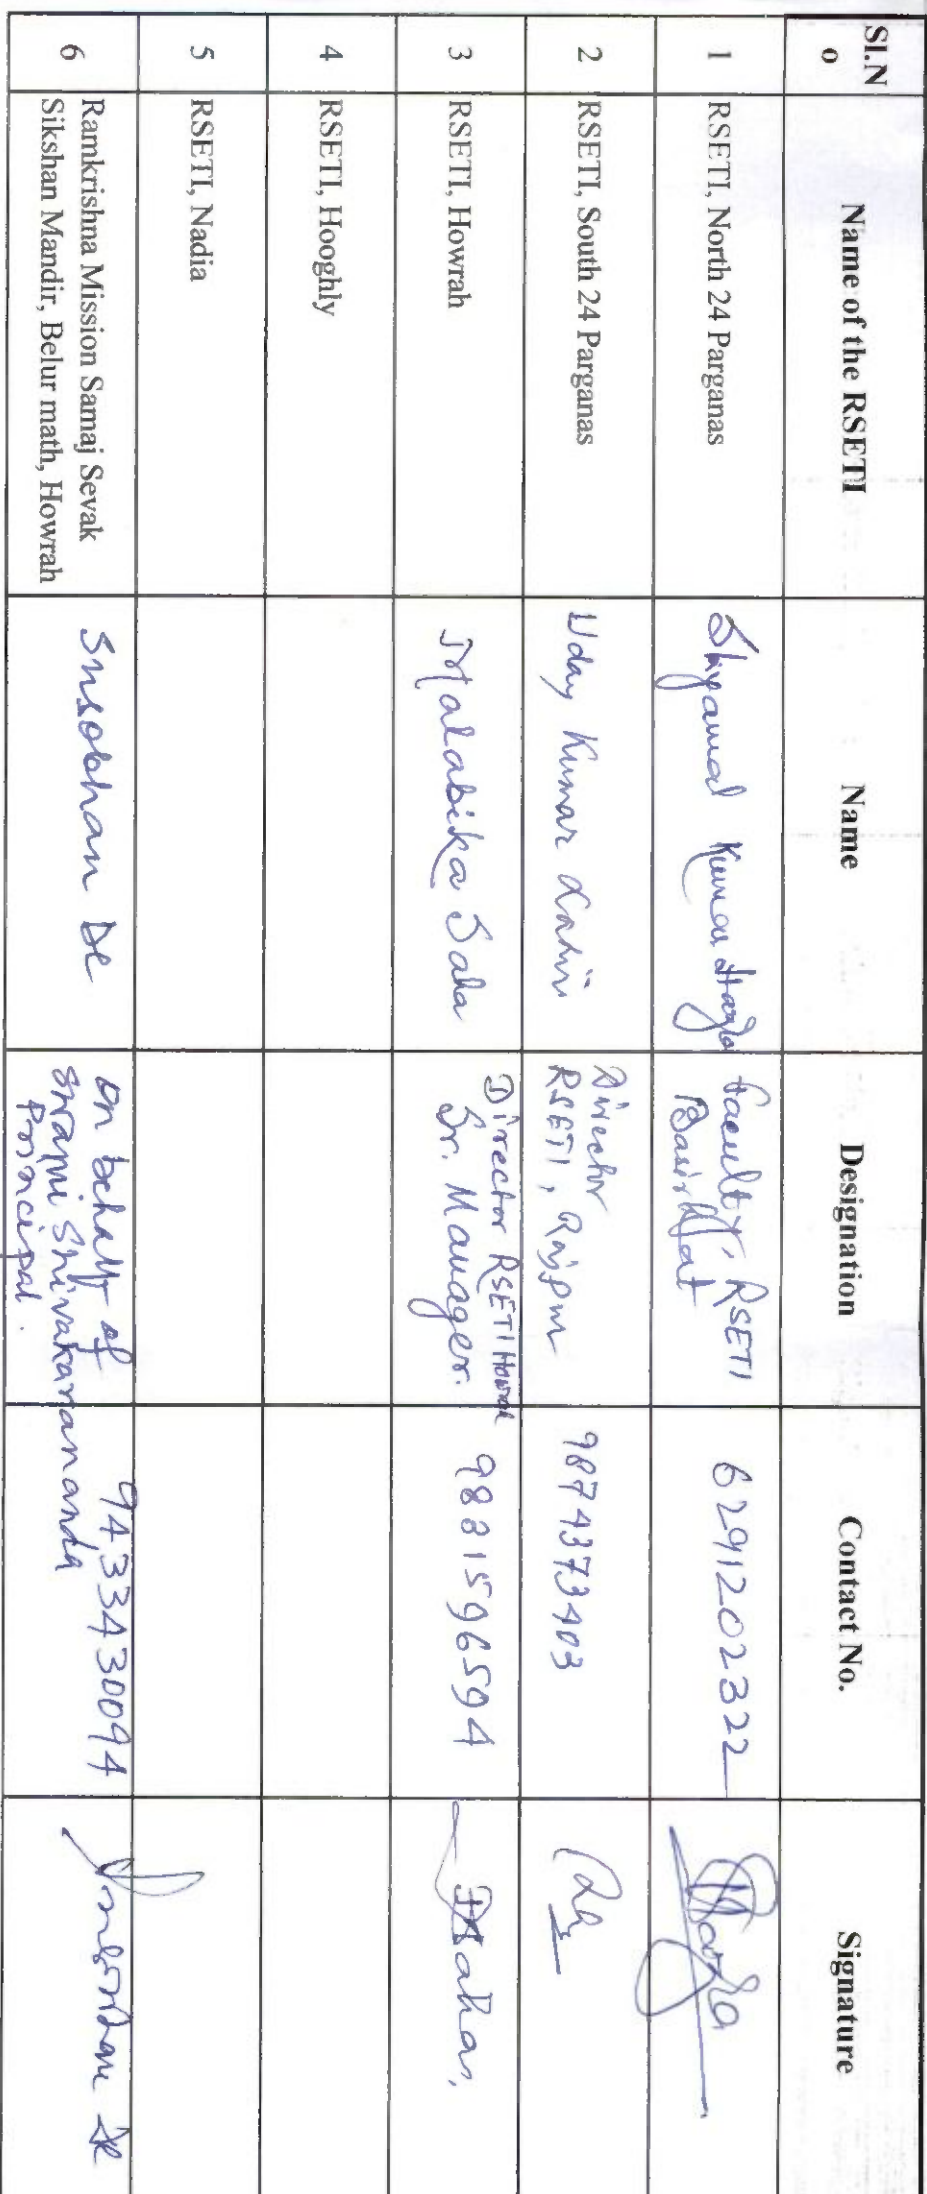 Sl.N
o
Name of the RSETI
Name
Designation
Contact No.
Signature
1
RSETI, North 24 Parganas
Shyamal Kumar
Faculty, RSETI
Basirhat
6291202322
2
RSETI, South 24 Parganas
Uday Kumar Lahiri
Director
RSETI, Rajpur
9874373403
3
RSETI, Howrah
Malabika Saha
Director RSETI Howrah
Sr. Manager.
9831596594
4
RSETI, Hooghly
5
RSETI, Nadia
6
Ramkrishna Mission Samaj Sevak
Sikshan Mandir, Belur math, Howrah
Snsobhan De
On behalf of
Swami Shivakarananda
Principal.
9433430094